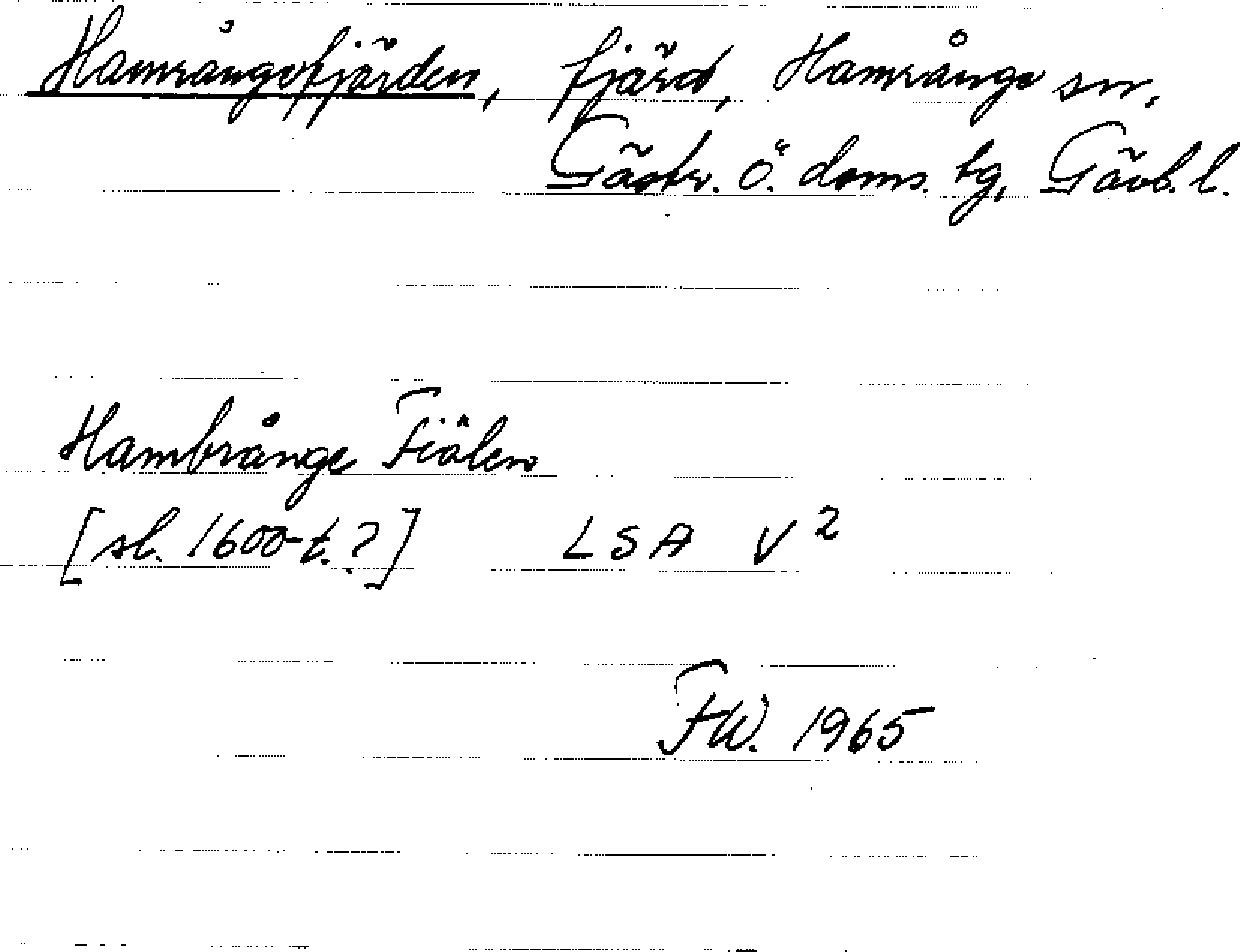 Hamrångefjärden, fjärd, Hamrånge sn,
Gästr. ö. doms. tg, Gävb. l.
Hambrånge Fiälen
[sl. 1600-t.?] LSA V 2
FW. 1965